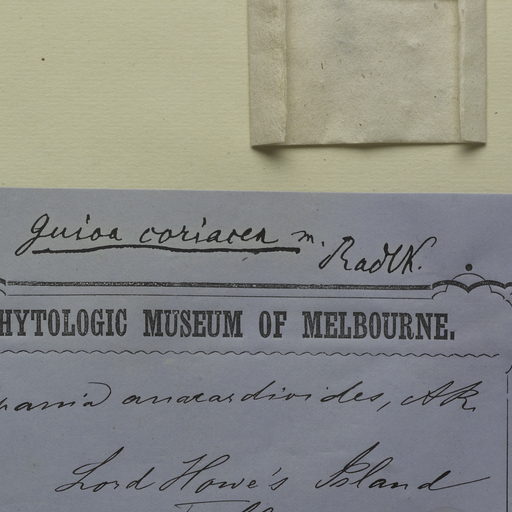 Guioa coriacea m. Radlk.
HYTOLOGIC MUSEUM OF MELBOURNE.
pania anacardioides, AR.
Lord Howe's Island